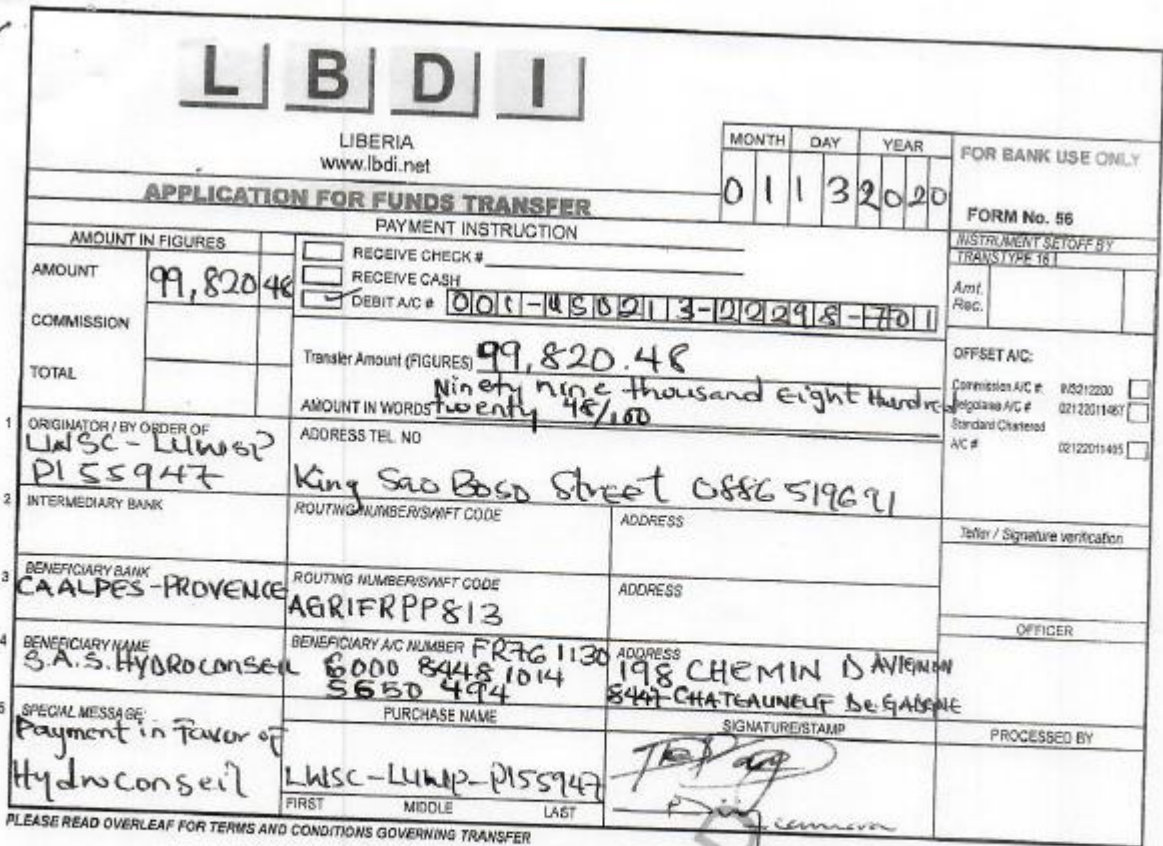 L B D I
LIBERIA
www.lbdi.net
APPLICATION FOR FUNDS TRANSFER
MONTH DAY YEAR
01 13 2020
FOR BANK USE ONLY
FORM No. 56
AMOUNT IN FIGURES
AMOUNT 99,820 48
COMMISSION
TOTAL
PAYMENT INSTRUCTION
RECEIVE CHECK #
RECEIVE CASH
DEBIT A/C # 001-USD213-22298-701
Transfer Amount (FIGURES) 99,820.48
Ninety nine thousand Eight Hundred
AMOUNT IN WORDS twenty 48/100
INSTRUMENT SETOFF BY
TRANSTYPE 161
Amt.
Rec.
OFFSET A/C:
Commission A/C #: INS212200
A/C # 02122011467
Standard Chartered
A/C # 02122011465
1 ORIGINATOR / BY ORDER OF
LWSC-LUWSP
P155947
ADDRESS TEL. NO
King Sao Boso Street 0886519691
2 INTERMEDIARY BANK
ROUTING NUMBER/SWIFT CODE
ADDRESS
Teller / Signature verification
3 BENEFICIARY BANK
CAALPES-PROVENCE
ROUTING NUMBER/SWIFT CODE
AGRIFRPP813
ADDRESS
OFFICER
4 BENEFICIARY NAME
S.A.S. HYDROCONSEIL
BENEFICIARY A/C NUMBER FR76 1130
6000 8448 1014
5650 494
ADDRESS
198 CHEMIN D AVIGNON
8447-CHATEAUNEUF DE GADAGNE
5 SPECIAL MESSAGE:
Payment in Favor of
Hydroconseil
PURCHASE NAME
LWSC-LUWP-P155947
FIRST MIDDLE LAST
SIGNATURE/STAMP
PROCESSED BY
PLEASE READ OVERLEAF FOR TERMS AND CONDITIONS GOVERNING TRANSFER